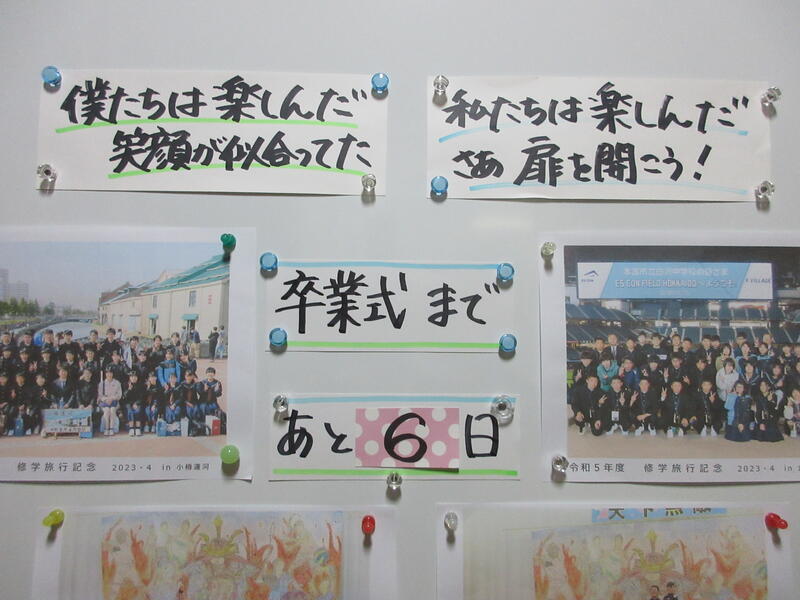 僕たちは楽しんだ
笑顔が似合ってた
私たちは楽しんだ
さあ 扉を開こう!
卒業式まで
あと6日
修学旅行記念 2023・4 in 小樽運河
ES CON FIELD HOKKAIDO へようこそ
F VILLAGE
令和5年度 修学旅行記念 2023・4 in